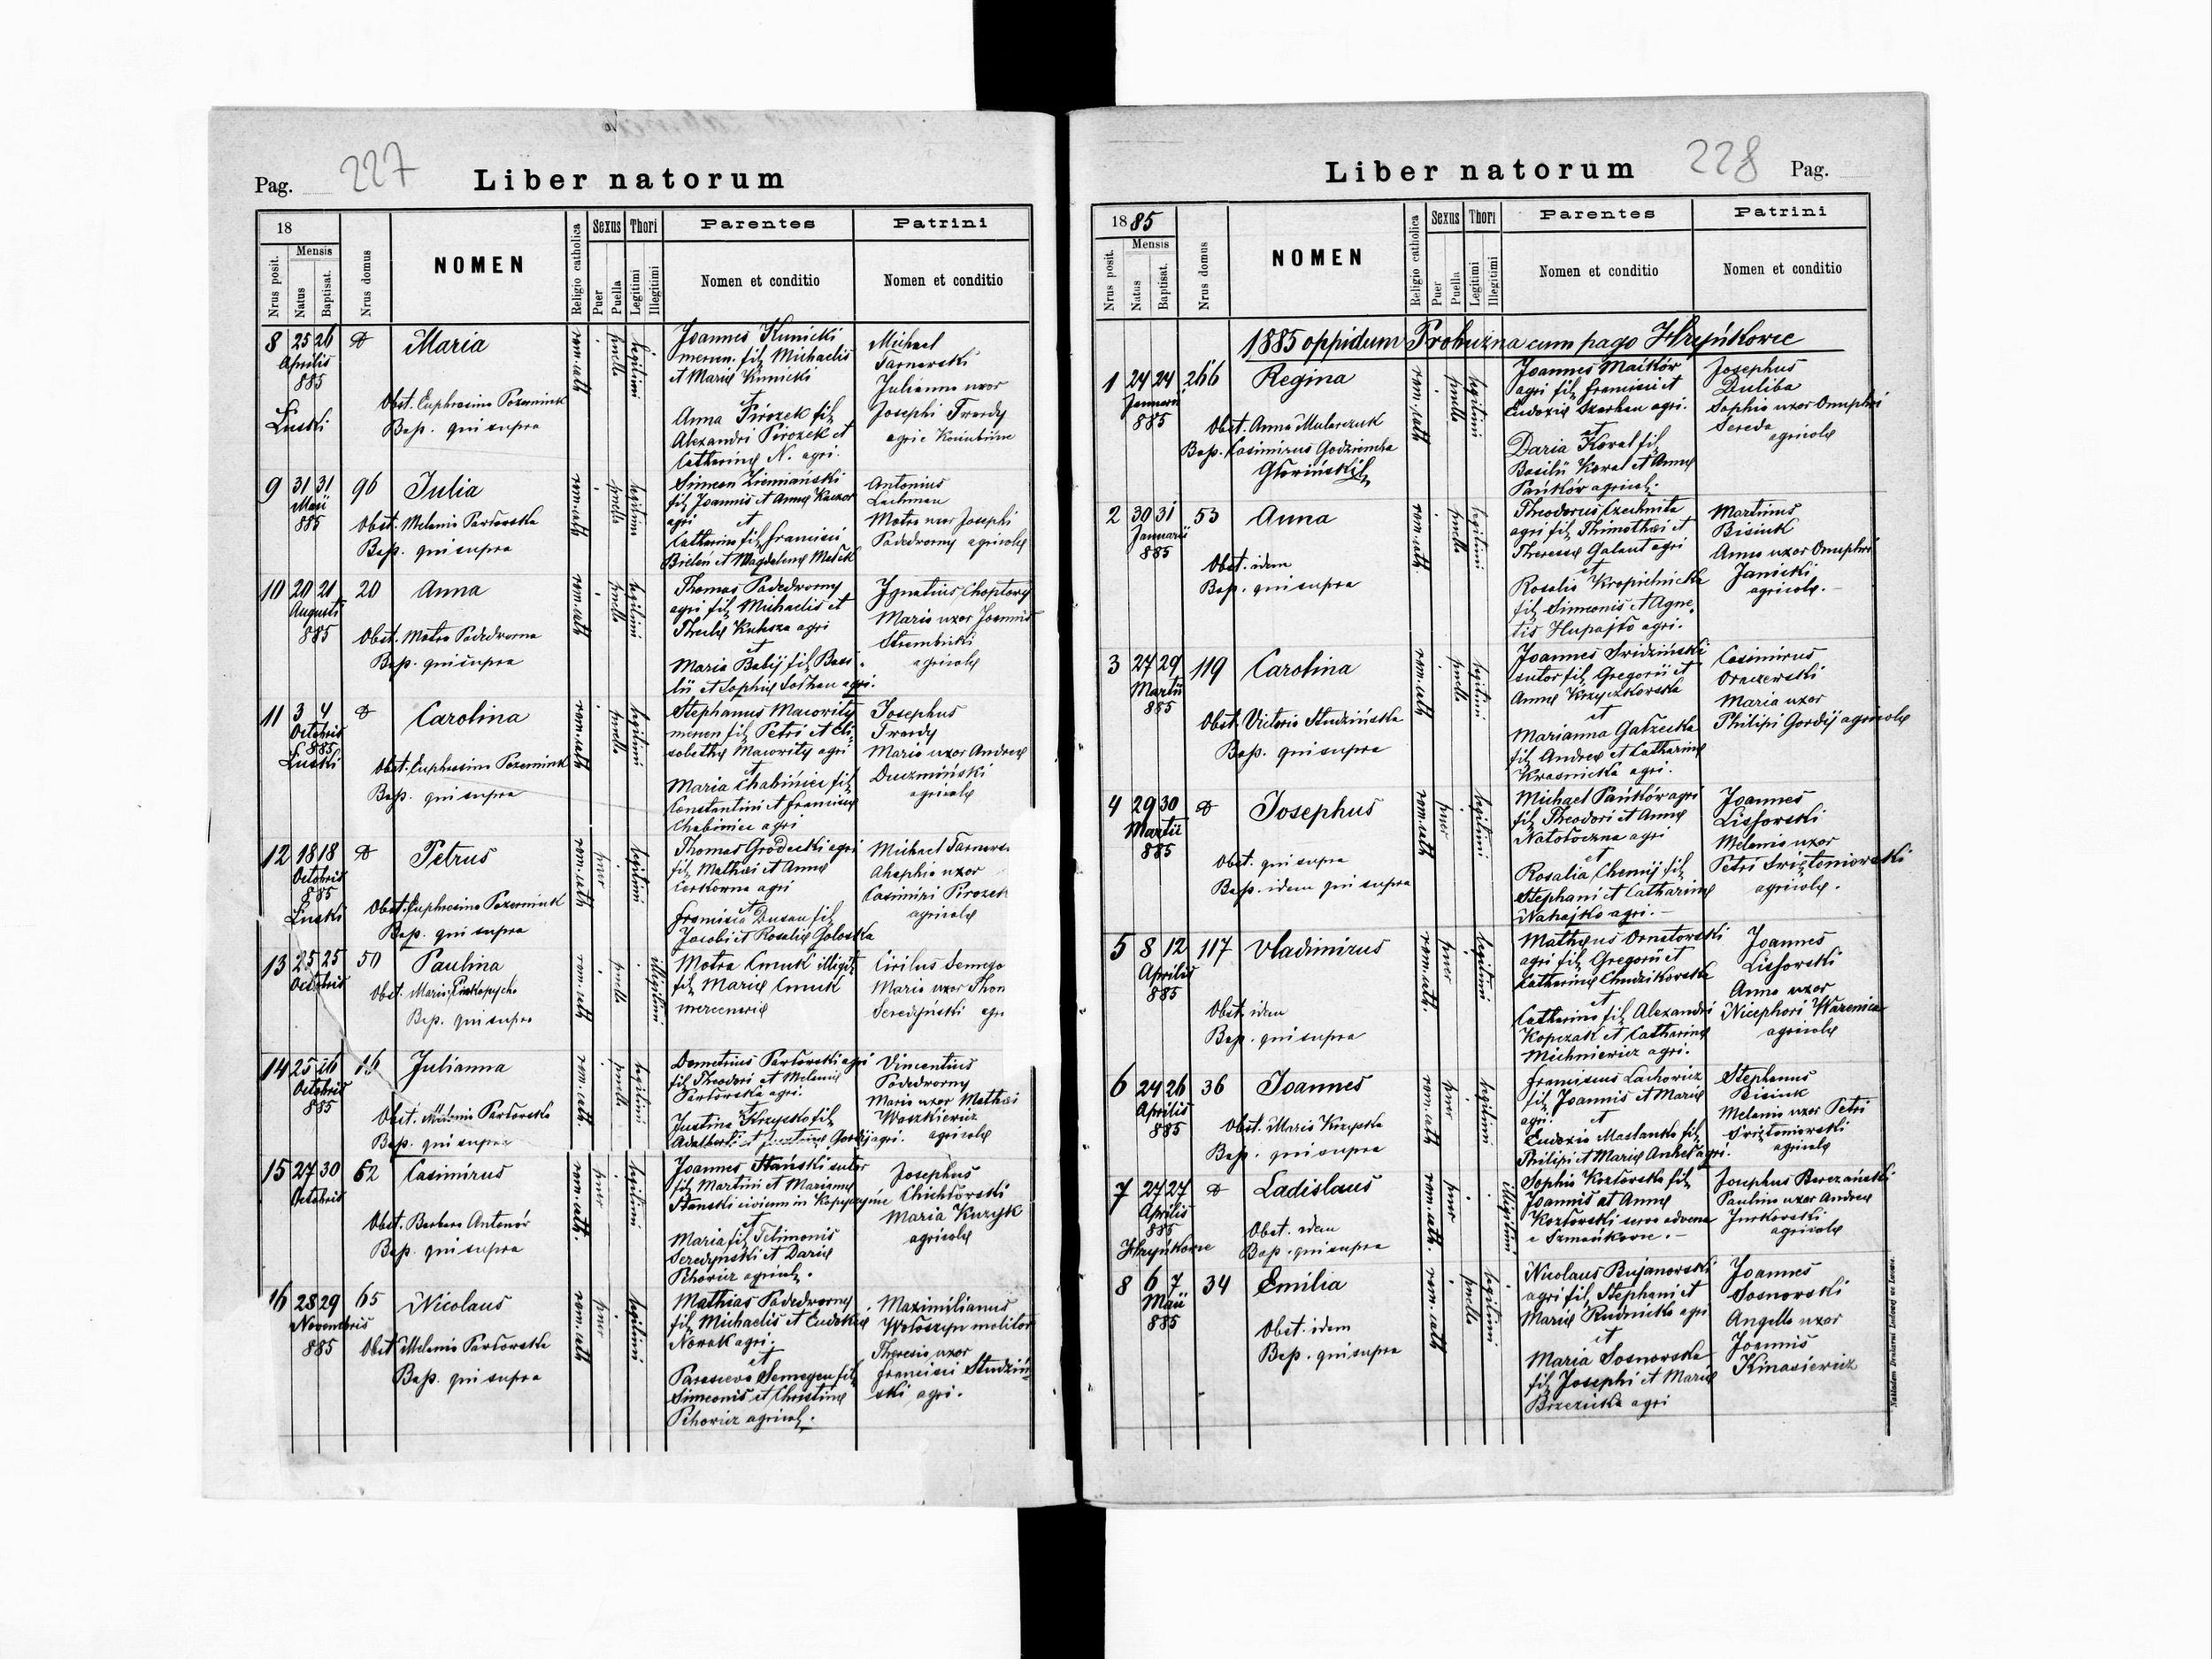 Pag. 227
Liber natorum
18
Mensis
Nrus posit.
Natus
Baptisat.
Nrus domus
NOMEN
Religio catholica
Sexus
Puer
Puella
Thori
Legitimi
Illegitimi
Parentes
Nomen et conditio
Patrini
Nomen et conditio
8 25 26 Aprilis 885
Luski
Maria
Obst. Euphrosina Pozerniuk
Bap. qui supra
rom. cath
puella
legitimi
Joannes Kunicki
mercen. fil Michaelis
et Mariæ Kunicki
et
Anna Pirozek fil
Alexandri Pirozek et
Catharinæ N. agri.
Michael
Tarnowski
Julianna uxor
Josephi Twardy
9 31 31 Maii 885
96
Julia
Obst. Melania Pawłowska
Bap. qui supra
rom. cath
puella
legitimi
Simeon Ziemiański
fil Joannis et Annæ Kaczor
agri et
Catharina fil Francisci
Antonius
Lachman
Motra uxor Josephi
Podedworny agricolæ
10 20 21 Augusti 885
20
Anna
Obst. Motra Podedworna
Bap. qui supra
rom. cath
puella
legitimi
Thomas Podedworny
agri fil Michaelis et
Theclæ agri
et
Maria Babij fil Basi
lii et Sophiæ agri.
Ignatius Choptowy
Maria uxor Joannis
Strembicki
agricolæ
11 3 4 Octobris 885
Luski
Carolina
Obst. Euphrosina Pozerniuk
Bap. qui supra
rom. cath
puella
legitimi
Stephanus Macowity
mercen fil Petri et Eli
sabethæ Macowity agri
et
Maria Chabiniec fil
Constantini et Franciscæ
Chabiniec agri
Josephus
Twardy
Maria uxor Andreæ
Duczmiński
agricolæ
12 18 18 Octobris 885
Luski
Petrus
Obst. Euphrosina Pozerniuk
Bap. qui supra
rom. cath
puer
legitimi
Thomas Grodecki agri
fil Mathæi et Annæ
Cerkowna agri
et
Francisca Dusan fil
Jacobi et Rosaliæ
Michael Tarnows
Ahaphia uxor
Casimiri Pirozek
agricolæ
13 25 25 Octobris
50
Paulina
Obst. Maria
Bap. qui supra
rom. cath
puella
illegitimi
Motra Cmuk illigit
fil Mariæ Cmuk
mercenariæ
Cirilus
Maria uxor Thom
Seredyński agr
14 25 26 Octobris 885
16
Julianna
Obst. Melania Pawłowska
Bap. qui supra
rom. cath
puella
legitimi
Demetrius Pawłowski agri
fil Theodori et Melaniæ
Pawłowska agri.
et
Justina Krzysko fil
Adalberti et Justinæ Gordij agri.
Vincentius
Podedworny
Maria uxor Mathæi
Waszkiewicz
agricolæ
15 27 30 Octobris
62
Casimirus
Obst. Barbara Antonów
Bap. qui supra
rom. cath.
puer
legitimi
Joannes Stański sutor
fil Martini et Mariannæ
Stanski civium in Kopyczyńce
et
Maria fil Filimonis
Seredyński et Dariæ
Pihowicz agricol.
Josephus
Chichłowski
Maria Kuzyk
agricolæ
16 28 29 Novembris 885
65
Nicolaus
Obst Melania Pawłowska
Bap. qui supra
rom. cath
puer
legitimi
Mathias Podedworny
fil Michaelis et Eudokiæ
Nowak agri.
et
fil
Simeonis et Christinæ
Pihowicz agricol.
Maximilianus
Wołoszyn molitor
Theresia uxor
Francisci Studziń
ski agri.
Liber natorum
228 Pag.
1885
Mensis
Nrus posit.
Natus
Baptisat.
Nrus domus
NOMEN
Religio catholica
Sexus
Puer
Puella
Thori
Legitimi
Illegitimi
Parentes
Nomen et conditio
Patrini
Nomen et conditio
1885 oppidum Probużna cum pago Hryńkowce
1 24 24 Januarii 885
266
Regina
Obst. Anna Mularczuk
Bap. Casimirus Godziemba
Głowiński
rom. cath
puella
legitimi
Joannes Maćków
agri fil Francisci et
Eudoxiæ agri.
et
Daria Kowal fil
Basilii Kowal et Annæ
Pańków agricol.
Josephus
Duliba
Sophia uxor Onuphri
Sereda
agricolæ
2 30 31 Januarii 885
53
Anna
Obst. idem
Bap. qui supra
rom. cath.
puella
legitimi
Theodorus Czechnita
agri fil Thimothæi et
Theressæ Galant agri
et
Rosalia Kropielnicka
fil Simeonis et Agne
tis Hupajło agri.
Martinus
Bisiuk
Anna uxor Onuphri
Janicki
agricolæ.
3 27 29 Martii 885
119
Carolina
Obst. Victoria Studzińska
Bap. qui supra
rom. cath
puella
legitimi
Joannes Swidziński
sutor fil Gregorii et
Annæ Krzyczkowska
et
Marianna Gałzecka
fil Andreæ et Catharinæ
Krasnicka agri.
Casimirus
Oraczewski
Maria uxor
Philipi Gordij agricolæ
4 29 30 Martii 885
Josephus
Obst. qui supra
Bap. idem qui supra
rom. cath
puer
legitimi
Michael Pańków agri
fil Theodori et Annæ
Natołoczna agri
et
Rosalia Chemij fil
Stephani et Catharinæ
Nahajło agri.
Joannes
Lisłowski
Melania uxor
Petri Swiętoniowski
agricolæ.
5 8 12 Aprilis 885
117
Vladimirus
Obst. idem
Bap. qui supra
rom. cath.
puer
legitimi
Mathæus Ornatowski
agri fil Gregorii et
Catharinæ Chudzikowska
et
Catharina fil Alexandri
Kopczak et Catharinæ
Michniewicz agri.
Joannes
Lisłowski
Anna uxor
Nicephori Warenica
agricolæ
6 24 26 Aprilis 885
36
Joannes
Obst. Maria Krzyska
Bap. qui supra
rom. cath
puer
legitimi
Franciscus Lachowicz
fil Joannis et Mariæ
agri. et
Eudoxia Maslanka fil
Philipi et Mariæ agri.
Stephanus
Bisiuk
Melania uxor Petri
Swiętoniowski
agricolæ
7 27 27 Aprilis 885
Hryńkowce
Ladislaus
Obst. idem
Bap. qui supra
rom. cath.
puer
illegitimi
Sophia Kozłowska fil
Joannis et Annæ
Kozłowski serva advena
e Szmańkowce.
Josephus Berezański
Paulina uxor Andreæ
Jurkowski
agricolæ
8 6 7 Maii 885
34
Emilia
Obst. idem
Bap. qui supra
rom. cath
puella
legitimi
Nicolaus Bujanowski
agri fil Stephani et
Mariæ Rudnicka agri
et
Maria Sosnowska
fil Josephi et Mariæ
Brzezicka agri
Joannes
Sosnowski
Angella uxor
Joannis
Kinasiewicz